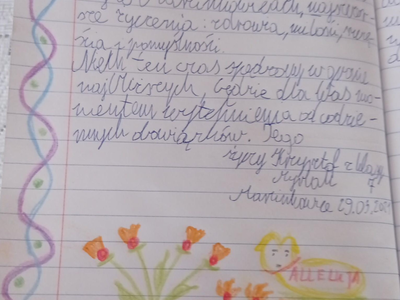 sze życzenia: zdrowia, miłości, szczę-
ścia i pomyślności.
Niech ten czas spędzony w gronie
najbliższych, będzie dla Was mo-
mentem wytchnienia od codzie-
nnych obowiązków. Tego
życzy Krzysztof z klasy
Marcinkowice 29.03.
ALLELUJA